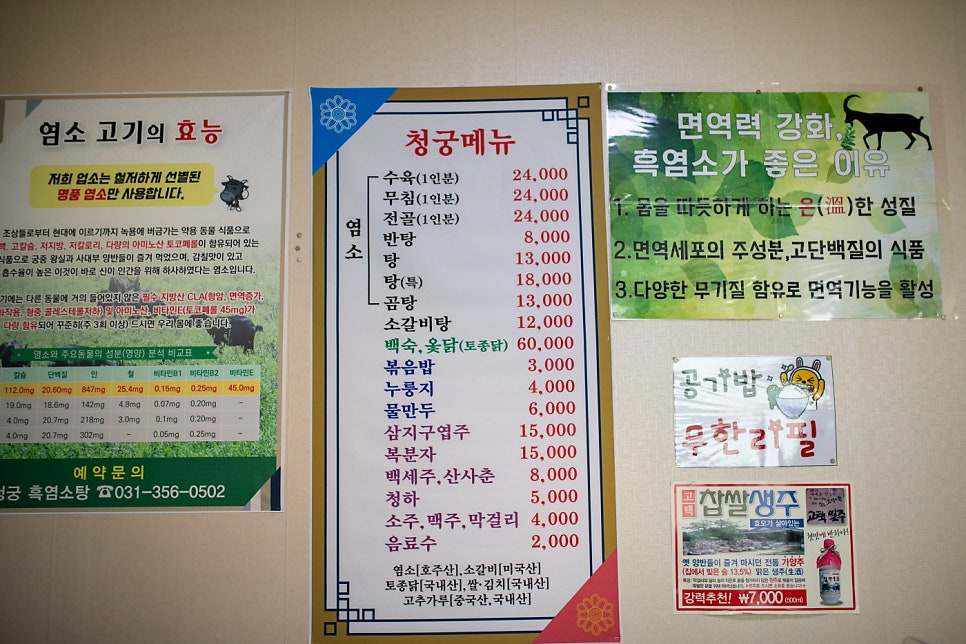 염소 고기의 효능
저희 업소는 철저하게 선별된
명품 염소만 사용합니다.
조상들로부터 현대에 이르기까지 녹용에 버금가는 약용 동물 식품으로
고칼슘, 저지방, 저칼로리, 다량의 아미노산 토코페롤이 함유되어 있는
식품으로 궁중 왕실과 사대부 양반들이 즐겨 먹었으며, 감칠맛이 있고
흡수율이 높은 이것이 바로 신이 인간을 위해 하사하였다는 염소입니다.
기에는 다른 동물에 거의 들어있지 않은 필수 지방산 CLA(항암, 면역증가,
화작용, 혈중 콜레스테롤저하) 및 아미노산, 비타민E(토코페롤 45mg)가
다량 함유되어 꾸준히(주 3회 이상) 드시면 우리 몸에 좋습니다.
염소와 주요동물의 성분(영양) 분석 비교표
칼슘 단백질 인 철 비타민B1 비타민B2 비타민E
112.0mg 20.60mg 847mg 25.4mg 0.15mg 0.25mg 45.0mg
19.0mg 18.6mg 142mg 4.8mg 0.07mg 0.20mg -
4.0mg 20.7mg 218mg 3.0mg 0.1mg 0.20mg -
4.0mg 20.7mg 302mg - 0.05mg 0.25mg -
예약문의
청궁 흑염소탕 ☎031-356-0502
청궁메뉴
염소
수육(1인분) 24,000
무침(1인분) 24,000
전골(1인분) 24,000
반탕 8,000
탕 13,000
탕(특) 18,000
곰탕 13,000
소갈비탕 12,000
백숙,옻닭(토종닭) 60,000
볶음밥 3,000
누룽지 4,000
물만두 6,000
삼지구엽주 15,000
복분자 15,000
백세주,산사춘 8,000
청하 5,000
소주,맥주,막걸리 4,000
음료수 2,000
염소[호주산],소갈비[미국산]
토종닭[국내산],쌀·김치[국내산]
고추가루[중국산,국내산]
면역력 강화,
흑염소가 좋은 이유
1. 몸을 따듯하게 하는 온(溫)한 성질
2.면역세포의 주성분,고단백질의 식품
3.다양한 무기질 함유로 면역기능을 활성
공기밥
무한리필
고택 찹쌀생주
효모가 살아있는
옛 양반들이 즐겨 마시던 전통 가양주
(집에서 빚은 술 13.5%) 맑은 생주(生酒)
강력추천! ₩7,000 (500ml)
고택 찹쌀주
첫맛에 반하다!